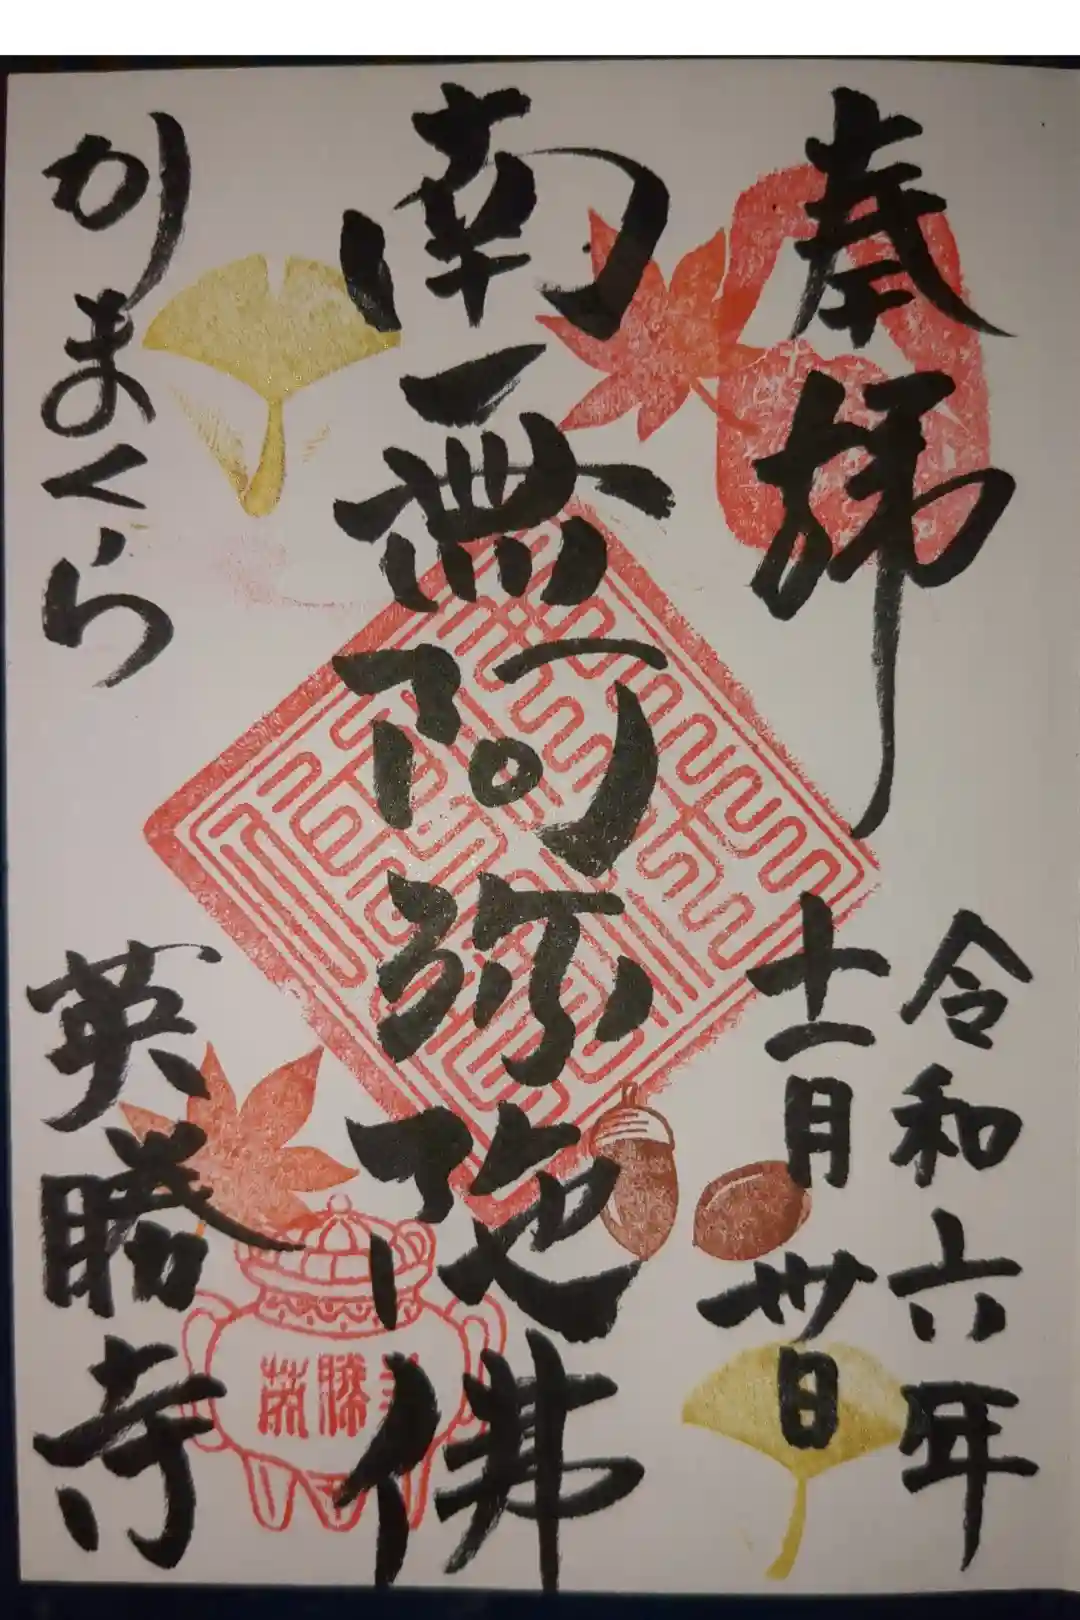 奉拝
令和六年
十一月卅日
南無阿弥陀佛
かまくら
英勝寺
英勝寺